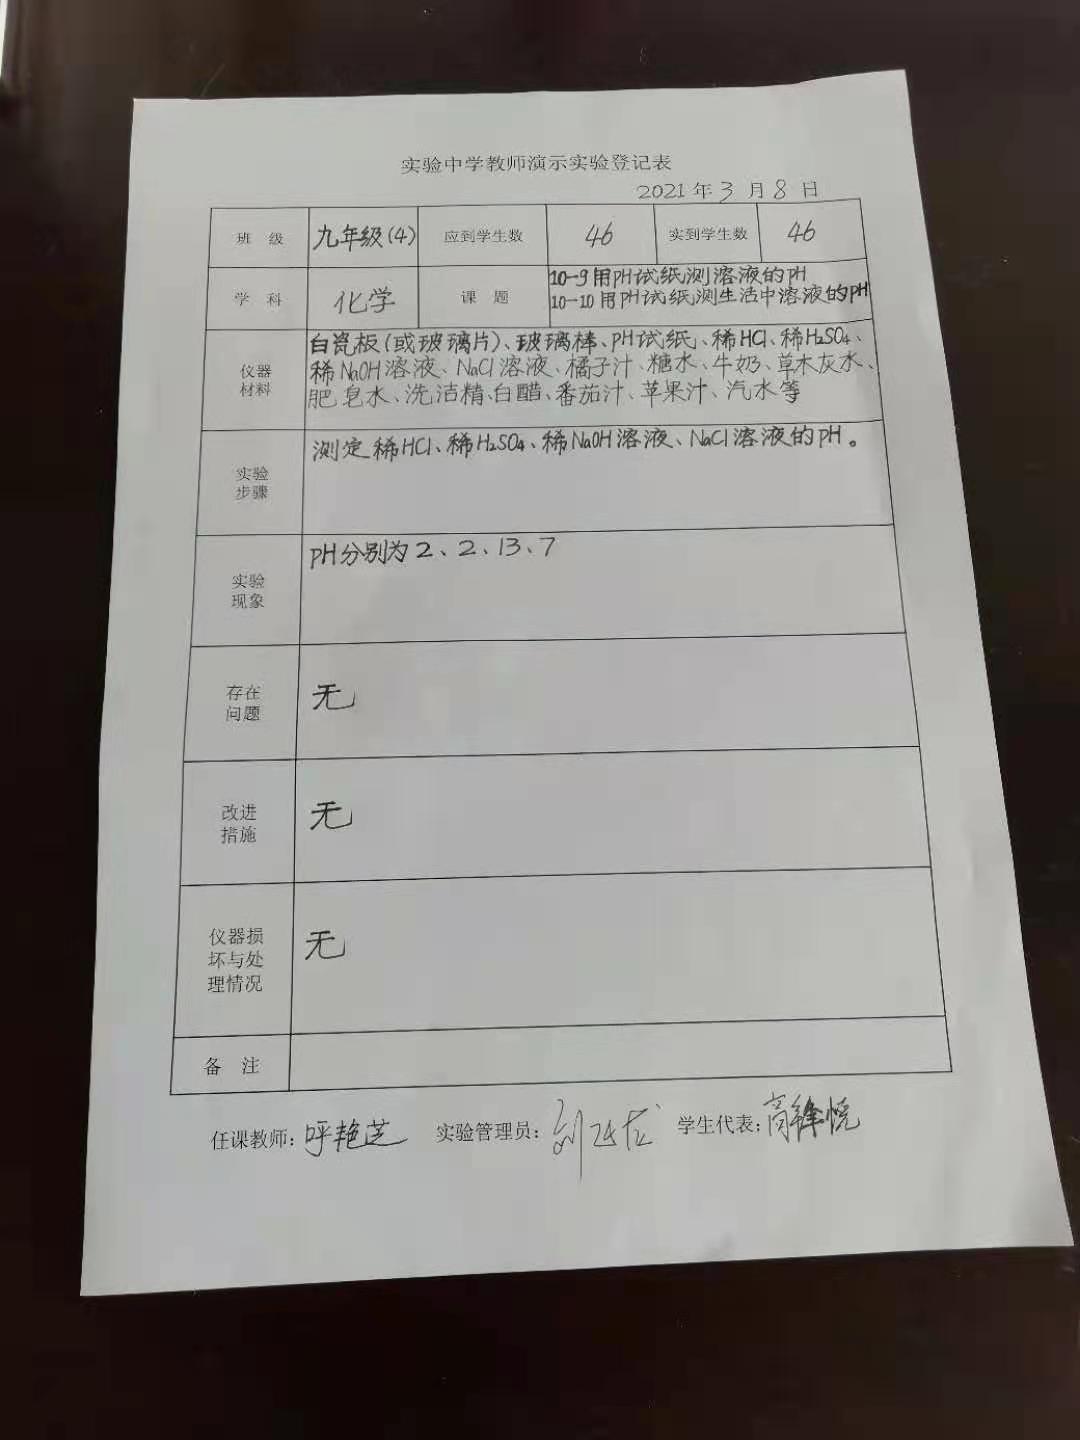 实验中学教师演示实验登记表
2021年3月8日
班 级 九年级(4) 应到学生数 46 实到学生数 46
学 科 化学 课 题 10-9 用PH试纸测溶液的PH
10-10 用PH试纸测生活中溶液的PH
仪器
材料
白瓷板(或玻璃片)、玻璃棒、PH试纸、稀HCl、稀H₂SO₄、
稀NaOH溶液、NaCl溶液、橘子汁、糖水、牛奶、草木灰水、
肥皂水、洗洁精、白醋、番茄汁、苹果汁、汽水等
实验
步骤
测定稀HCl、稀H₂SO₄、稀NaOH溶液、NaCl溶液的PH。
实验
现象
PH分别为2、2、13、7
存在
问题
无
改进
措施
无
仪器损
坏与处
理情况
无
备 注
任课教师: 呼艳芝 实验管理员: 学生代表: